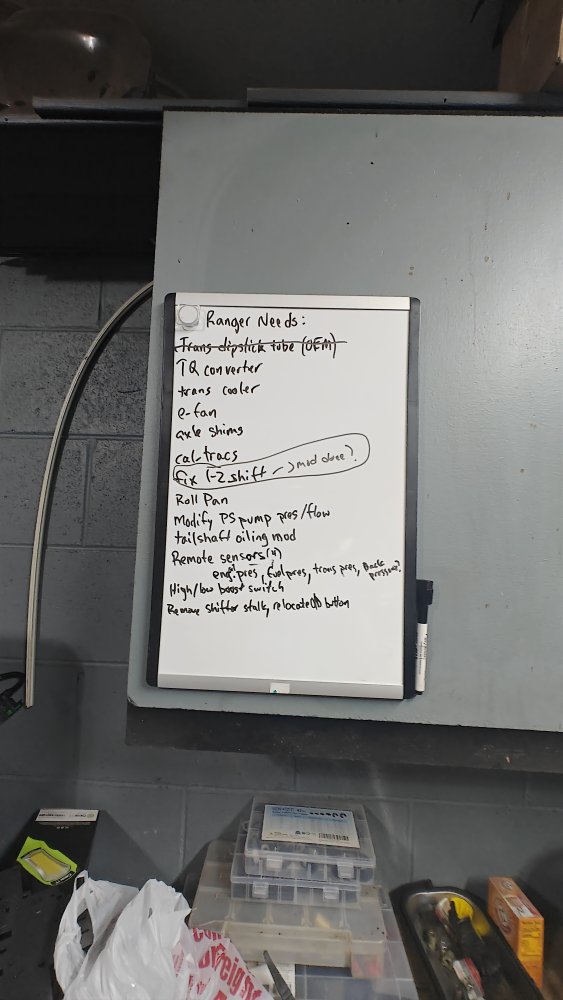 Ranger Needs:
Trans dipstick tube (OEM)
TQ converter
trans cooler
e-fan
axle shims
cal-tracs
fix 1-2 shift -> mod done?
Roll Pan
Modify PS pump pres/flow
tailshaft oiling mod
Remote sensors(4)
eng. pres, fuel pres, trans pres, Back pressure?
High/low boost switch
Remove shifter stalk, relocate O/D button